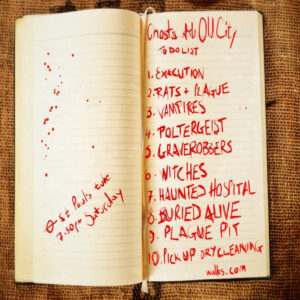 St Pauls tube
7.30pm Saturday
Ghosts of the Old City
TO DO LIST
1. EXECUTION
2. RATS + PLAGUE
3. VAMPIRES
4. POLTERGEIST
5. GRAVEROBBERS
6. WITCHES
7. HAUNTED HOSPITAL
8 BURIED ALIVE
9. PLAGUE PIT
10. PICK UP DRY CLEANING
walks.com